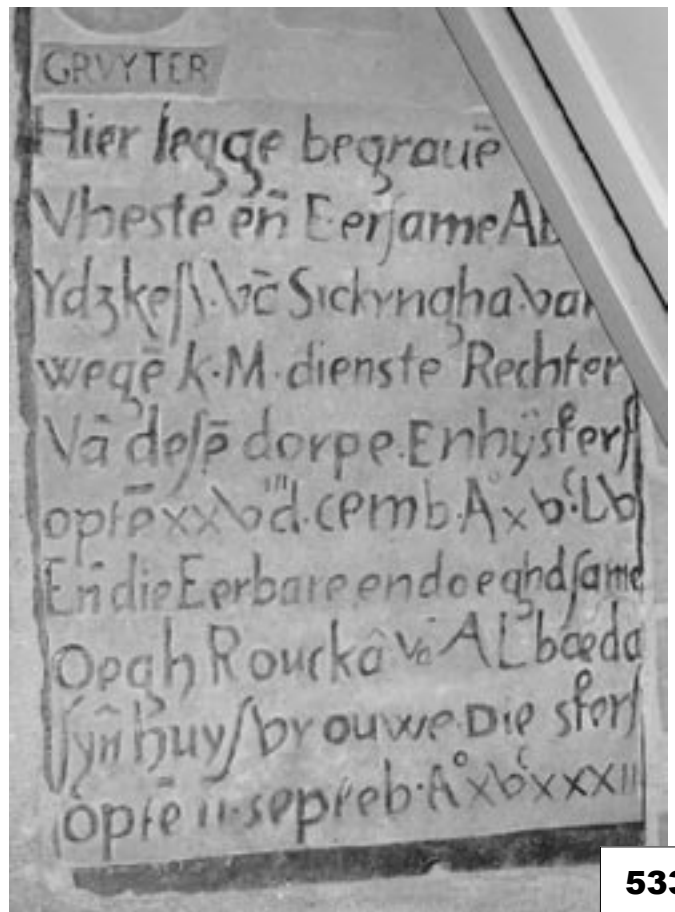 GRVYTER
Hier legge begrauē
Vheste en̄ Eerſame Ab
Ydzkeſſ. Vā Sickyngha. van
wegē k. M. dienste Rechter
Vā deſē dorpe. En hÿ sterf
optē xxvᵐ d.cemb. A° xvᶜ Lv
En̄ die Eerbare en doeghdſame
Oegh Rouckâ vā ALbaeda
ſyn̄ huyſvrouwe. Die sterf
optē ii. septeb. A° xvᶜ xxxii
533